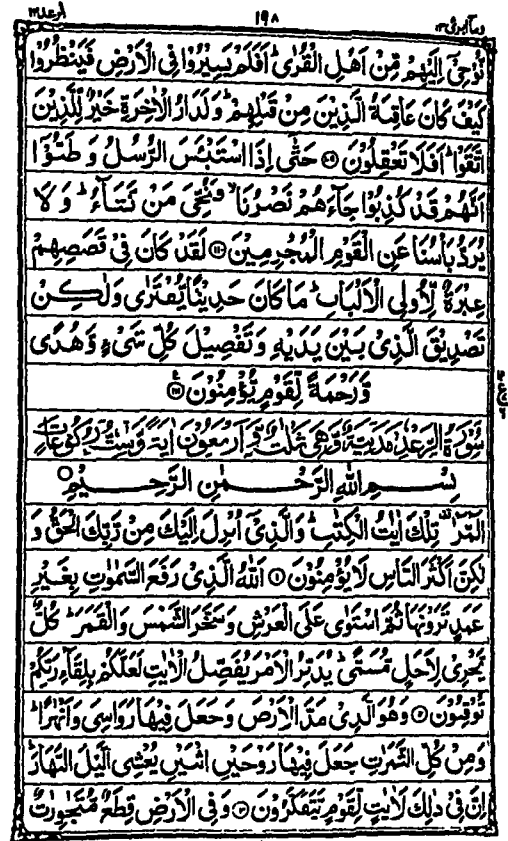 وما ابرئ ١٣ ١٩٨ الرعد ١٣
نُّوْحِیْۤ اِلَیْهِمْ مِّنْ اَهْلِ الْقُرٰیؕ اَفَلَمْ یَسِیْرُوْا فِی الْاَرْضِ فَیَنْظُرُوْا
كَیْفَ كَانَ عَاقِبَةُ الَّذِیْنَ مِنْ قَبْلِهِمْؕ وَلَدَارُ الْاٰخِرَةِ خَیْرٌ لِّلَّذِیْنَ
اتَّقَوْاؕ اَفَلَا تَعْقِلُوْنَ ۝۱۰۹ حَتّٰۤی اِذَا اسْتَیْـَٔسَ الرُّسُلُ وَ ظَنُّوْۤا
اَنَّهُمْ قَدْ كُذِبُوْا جَآءَهُمْ نَصْرُنَاۙ فَنُجِّیَ مَنْ نَّشَآءُؕ وَ لَا
یُرَدُّ بَاْسُنَا عَنِ الْقَوْمِ الْمُجْرِمِیْنَ ۝۱۱۰ لَقَدْ كَانَ فِیْ قَصَصِهِمْ
عِبْرَةٌ لِّاُولِی الْاَلْبَابِؕ مَا كَانَ حَدِیْثًا یُّفْتَرٰی وَلٰكِنْ
تَصْدِیْقَ الَّذِیْ بَیْنَ یَدَیْهِ وَ تَفْصِیْلَ كُلِّ شَیْءٍ وَّ هُدًی
وَّ رَحْمَةً لِّقَوْمٍ یُّؤْمِنُوْنَ ۝۱۱۱
سُوْرَةُ الرَّعْدِ مَدَنِیَّةٌ وَّهِیَ ثَلٰثٌ وَّ اَرْبَعُوْنَ اٰیَةً وَّسِتُّ رُكُوْعَاتٍ
بِسْمِ اللّٰهِ الرَّحْمٰنِ الرَّحِیْمِ
الٓمّٓرٰ۫ تِلْكَ اٰیٰتُ الْكِتٰبِؕ وَ الَّذِیْۤ اُنْزِلَ اِلَیْكَ مِنْ رَّبِّكَ الْحَقُّ وَ
لٰكِنَّ اَكْثَرَ النَّاسِ لَا یُؤْمِنُوْنَ ۝۱ اَللّٰهُ الَّذِیْ رَفَعَ السَّمٰوٰتِ بِغَیْرِ
عَمَدٍ تَرَوْنَهَا ثُمَّ اسْتَوٰی عَلَی الْعَرْشِ وَ سَخَّرَ الشَّمْسَ وَ الْقَمَرَؕ كُلٌّ
یَّجْرِیْ لِاَجَلٍ مُّسَمًّیؕ یُدَبِّرُ الْاَمْرَ یُفَصِّلُ الْاٰیٰتِ لَعَلَّكُمْ بِلِقَآءِ رَبِّكُمْ
تُوْقِنُوْنَ ۝۲ وَ هُوَ الَّذِیْ مَدَّ الْاَرْضَ وَ جَعَلَ فِیْهَا رَوَاسِیَ وَ اَنْهٰرًاؕ
وَ مِنْ كُلِّ الثَّمَرٰتِ جَعَلَ فِیْهَا زَوْجَیْنِ اثْنَیْنِ یُغْشِی الَّیْلَ النَّهَارَؕ
اِنَّ فِیْ ذٰلِكَ لَاٰیٰتٍ لِّقَوْمٍ یَّتَفَكَّرُوْنَ ۝۳ وَ فِی الْاَرْضِ قِطَعٌ مُّتَجٰوِرٰتٌ